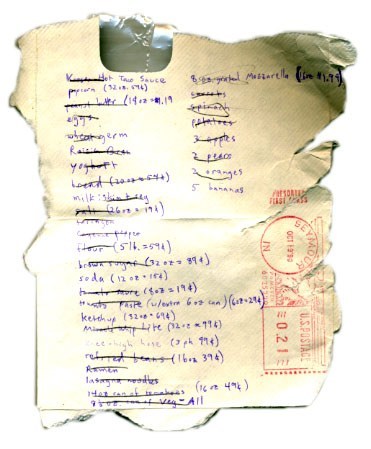 Kroger Hot Taco Sauce
popcorn (32oz. 59¢)
peanut butter (18oz = $1.19
eggs
wheat germ
Raisin Bran
yoghurt
bread (20oz = 54¢)
milk: skim + reg
salt (26oz = 19¢)
flour (5 lb. = 59¢)
brown sugar (32oz = 89¢)
soda (12oz = 15¢)
(8oz = 19¢)
Tomato Paste (w/extra 6oz can) (6oz = 29¢)
ketchup (32oz = 69¢)
Miracle Whip Lite (32oz = 99¢)
knee high hose (3ph 99¢)
refried beans (16oz 39¢)
Ramen
lasagna noodles
14oz can of tomatoes (16oz 49¢)
8½oz. can of Veg-All
grated Mozzarella (16oz $1.99)
carrots
spinach
potatoes
3 apples
2 pears
2 oranges
5 bananas
PRESORTED
FIRST CLASS
SEYMOUR
OCT 19 90
IN
U.S. POSTAGE
021